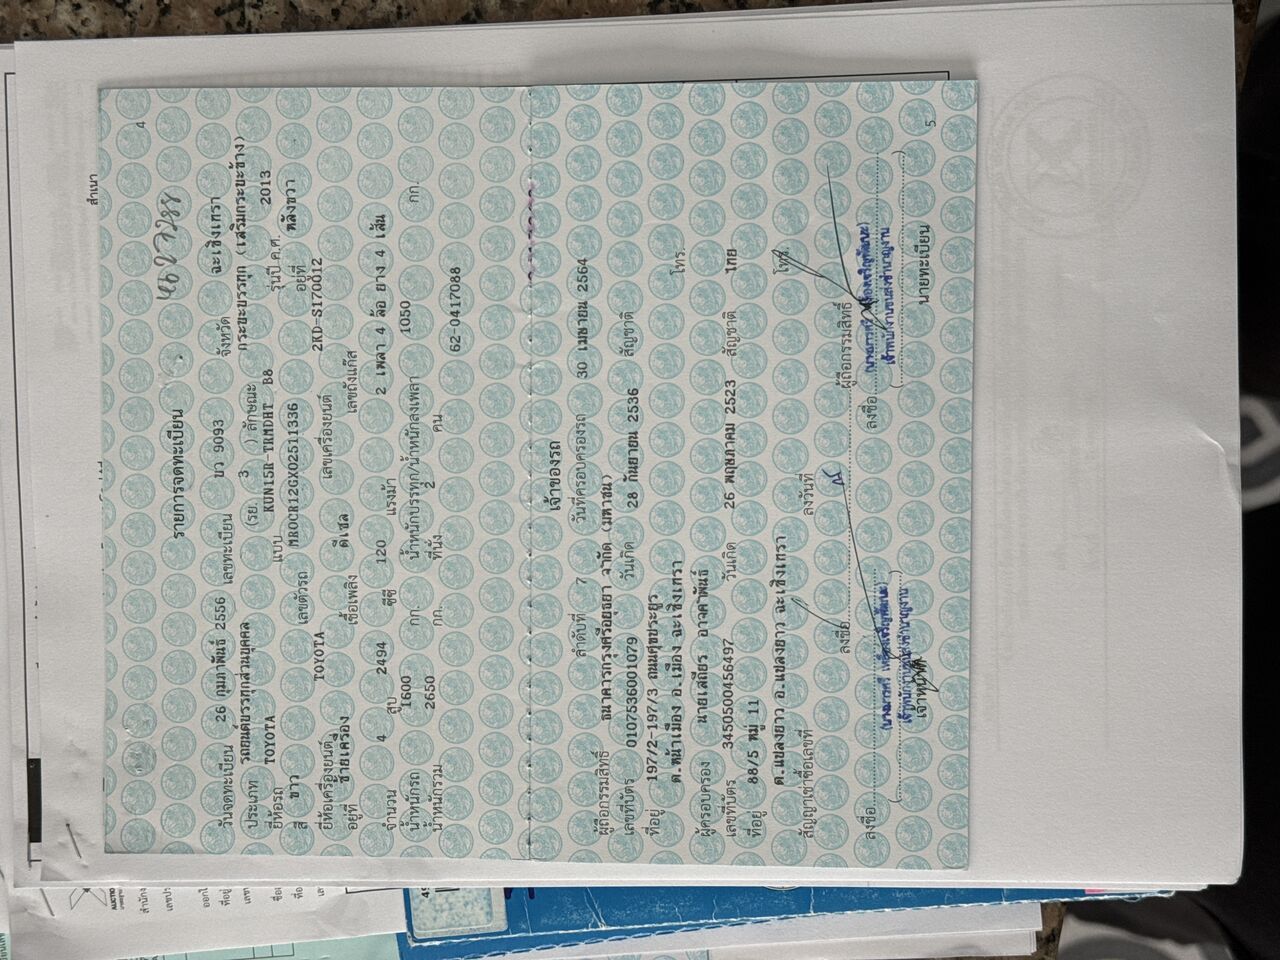 สำเนา
4
รายการจดทะเบียน
วันจดทะเบียน 26 กุมภาพันธ์ 2556 เลขทะเบียน บว 9093 จังหวัด ฉะเชิงเทรา
ประเภท รถยนต์บรรทุกส่วนบุคคล (รย. 3 ) ลักษณะ กระบะบรรทุก (เสริมกระบะข้าง)
ยี่ห้อรถ TOYOTA แบบ KUN15R-TRMDHT B8 รุ่นปี ค.ศ. 2013
สี ขาว เลขตัวรถ MROCR12GX02511336 อยู่ที่ หลังขวา
ยี่ห้อเครื่องยนต์ TOYOTA เลขเครื่องยนต์ 2KD-S170012
อยู่ที่ ซ้ายเครื่อง เชื้อเพลิง ดีเซล เลขถังแก๊ส
จำนวน 4 สูบ 2494 ซีซี 120 แรงม้า 2 เพลา 4 ล้อ ยาง 4 เส้น
น้ำหนักรถ 1600 กก. น้ำหนักบรรทุก/น้ำหนักลงเพลา 1050 กก.
น้ำหนักรวม 2650 กก. ที่นั่ง 2 คน 62-0417088
เจ้าของรถ
ลำดับที่ 7 วันที่ครอบครองรถ 30 เมษายน 2564
ผู้ถือกรรมสิทธิ์ ธนาคารกรุงศรีอยุธยา จำกัด (มหาชน)
เลขที่บัตร 0107536001079 วันเกิด 28 กันยายน 2536 สัญชาติ
ที่อยู่ 197/2-197/3 ถนนศุขประยูร
ต.หน้าเมือง อ.เมือง ฉะเชิงเทรา โทร.
ผู้ครอบครอง นายเสถียร อาจคาพันธ์
เลขที่บัตร 3450500456497 วันเกิด 26 พฤษภาคม 2523 สัญชาติ ไทย
ที่อยู่ 88/5 หมู่ 11
ต.แปลงยาว อ.แปลงยาว ฉะเชิงเทรา โทร.
สัญญาเช่าซื้อเลขที่ ลงวันที่
ลงชื่อ ผู้ถือกรรมสิทธิ์
ลงชื่อ ลงชื่อ
เจ้าหน้าที่ นายทะเบียน
5